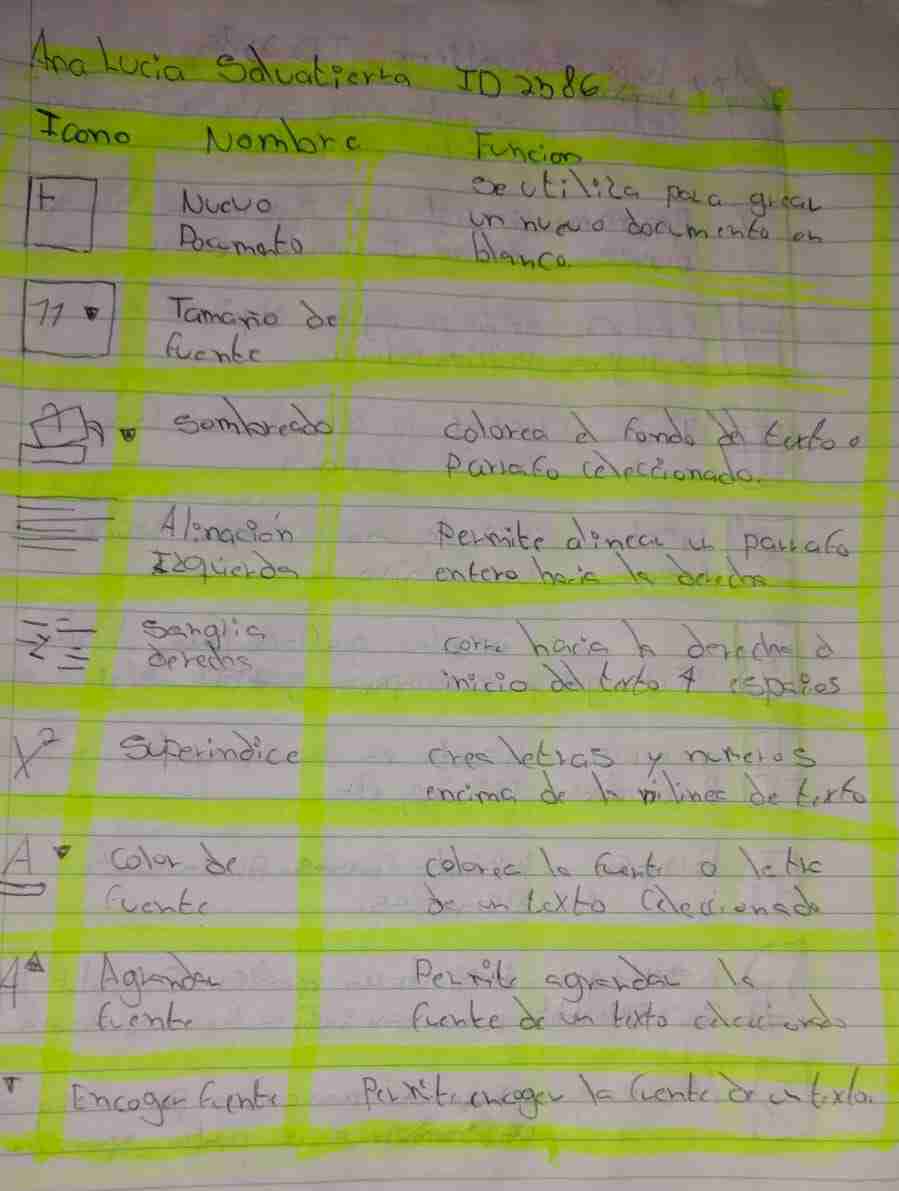 Ana Lucia Salvatierra ID 2386
Icono Nombre Funcion
Nuevo Documento
se utiliza para grear
un nuevo documento en
blanco.
11
Tamaño de
fuente
Sombreado
colorea el fondo del texto o
Parrafo celeccionado.
Alinación
Izquierda
Permite alinear un parrafo
entero hacia la derecha
Sangria
derecha
corre hacia la derecha el
inicio del texto 4 espacios
X²
Superindice
crea letras y numeros
encima de la linea de texto
A
Color de
fuente
colorea la fuente o letra
de un texto celeccionado
A
Agrandar
fuente
Permite agrandar la
fuente de un texto celeccionado
Encoger fuente
Permite encoger la fuente de un texto.